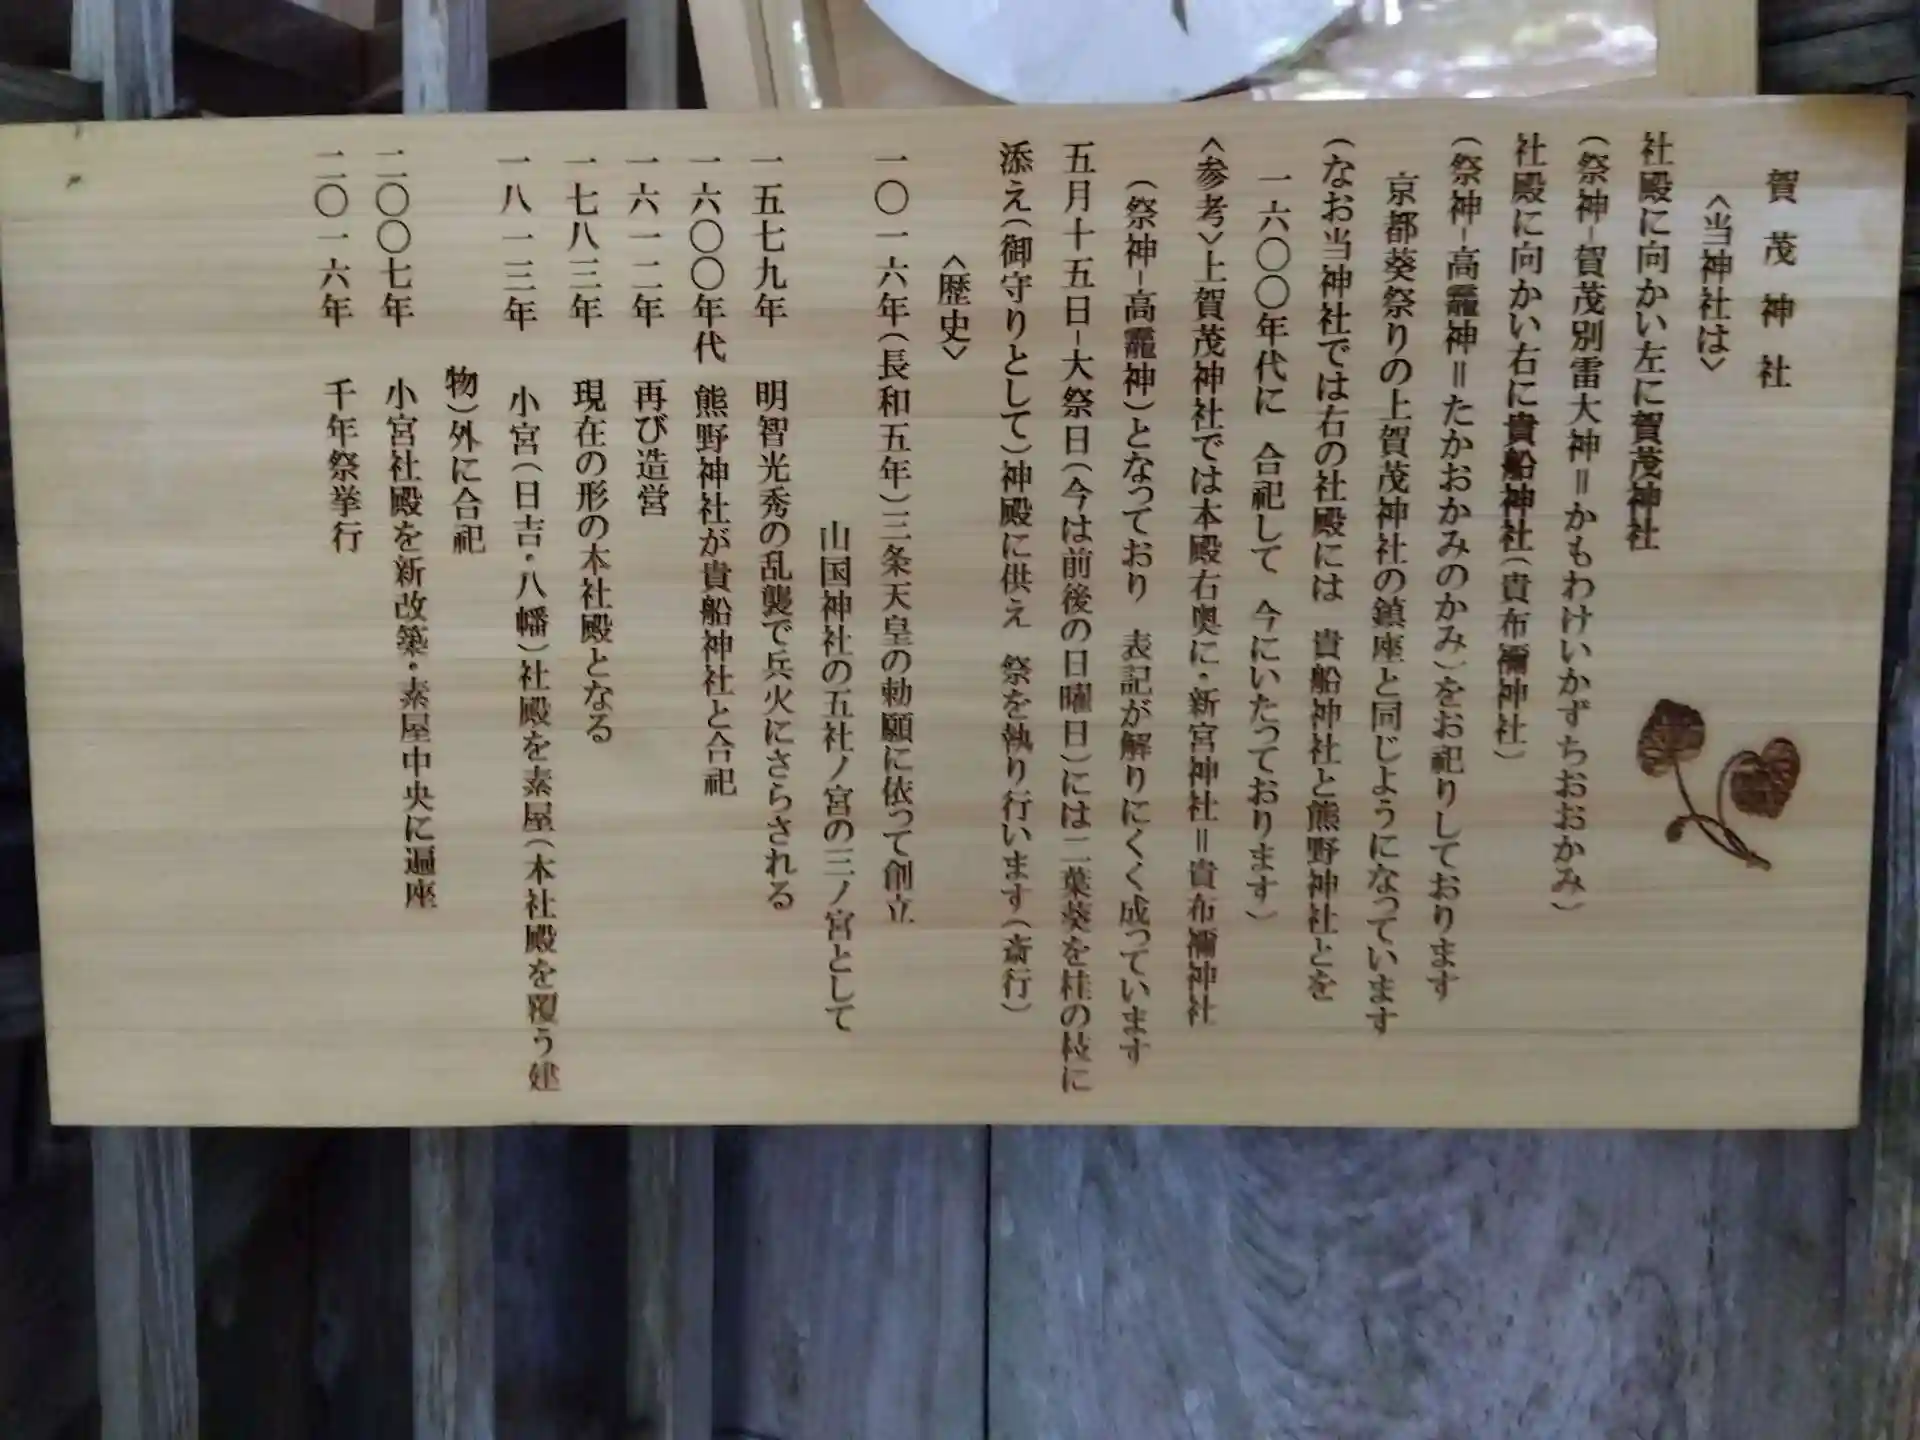 賀茂神社
<当神社は>
社殿に向かい左に賀茂神社
(祭神-賀茂別雷大神=かもわけいかずちおおかみ)
社殿に向かい右に貴船神社(貴布禰神社)
(祭神-高龗神=たかおかみのかみ)をお祀りしております
京都葵祭りの上賀茂神社の鎮座と同じようになっています
(なお当神社では右の社殿には 貴船神社と熊野神社とを
一六〇〇年代に 合祀して 今にいたっております)
<参考>上賀茂神社では本殿右奥に・新宮神社=貴布禰神社
(祭神-高龗神)となっており 表記が解りにくく成っています
五月十五日-大祭日(今は前後の日曜日)には二葉葵を桂の枝に
添え(御守りとして)神殿に供え 祭を執り行います(斎行)
<歴史>
一〇一六年(長和五年)三条天皇の勅願に依って創立
山国神社の五社ノ宮の三ノ宮として
一五七九年 明智光秀の乱襲で兵火にさらされる
一六〇〇年代 熊野神社が貴船神社と合祀
一六一二年 再び造営
一七八三年 現在の形の本社殿となる
一八一三年 小宮(日吉・八幡)社殿を素屋(本社殿を覆う建
物)外に合祀
二〇〇七年 小宮社殿を新改築・素屋中央に遍座
二〇一六年 千年祭挙行